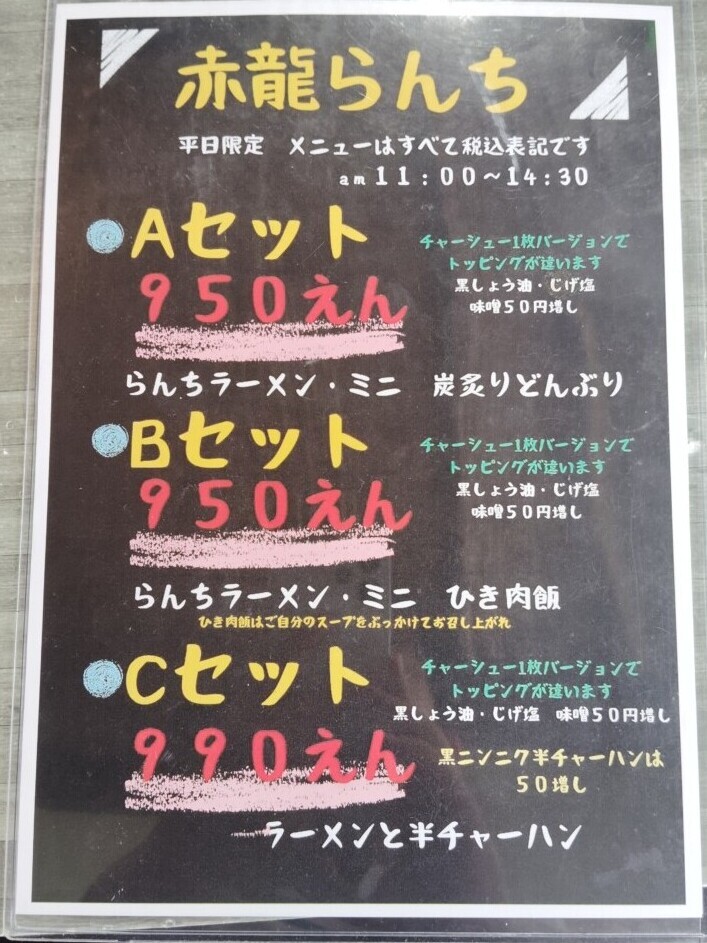 赤龍らんち
平日限定　メニューはすべて税込表記です
am１１：００～１４：３０
Aセット
９５０えん
チャーシュー1枚バージョンで
トッピングが違います
黒しょう油・じげ塩
味噌５０円増し
らんちラーメン・ミニ　炭炙りどんぶり
Bセット
９５０えん
チャーシュー1枚バージョンで
トッピングが違います
黒しょう油・じげ塩
味噌５０円増し
らんちラーメン・ミニ　ひき肉飯
ひき肉飯はご自分のスープをぶっかけてお召し上がれ
Cセット
９９０えん
チャーシュー1枚バージョンで
トッピングが違います
黒しょう油・じげ塩　味噌５０円増し
黒ニンニク半チャーハンは
５０増し
ラーメンと半チャーハン